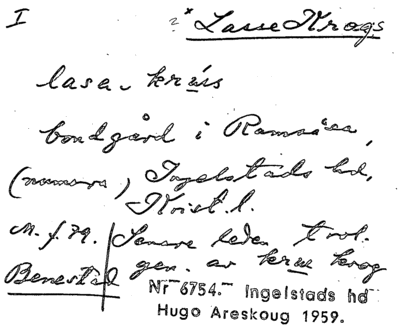 I
Lasse Krogs
lasa-krɯss
bondgård i Ramsåsa,
(numera) Ingelstads hd,
Krist. l.
M. f. 79. Senare leden trol.
gen. av krɯ krog
Benestad
Nr 6754. Ingelstads hd
Hugo Areskoug 1959.